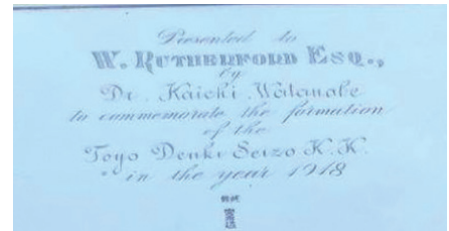 Presented to
W. RUTHERFORD ESQ.,
by
Dr. Kaichi Watanabe
to commemorate the formation
of the
Toyo Denki Seizo K.K.
in the year 1918